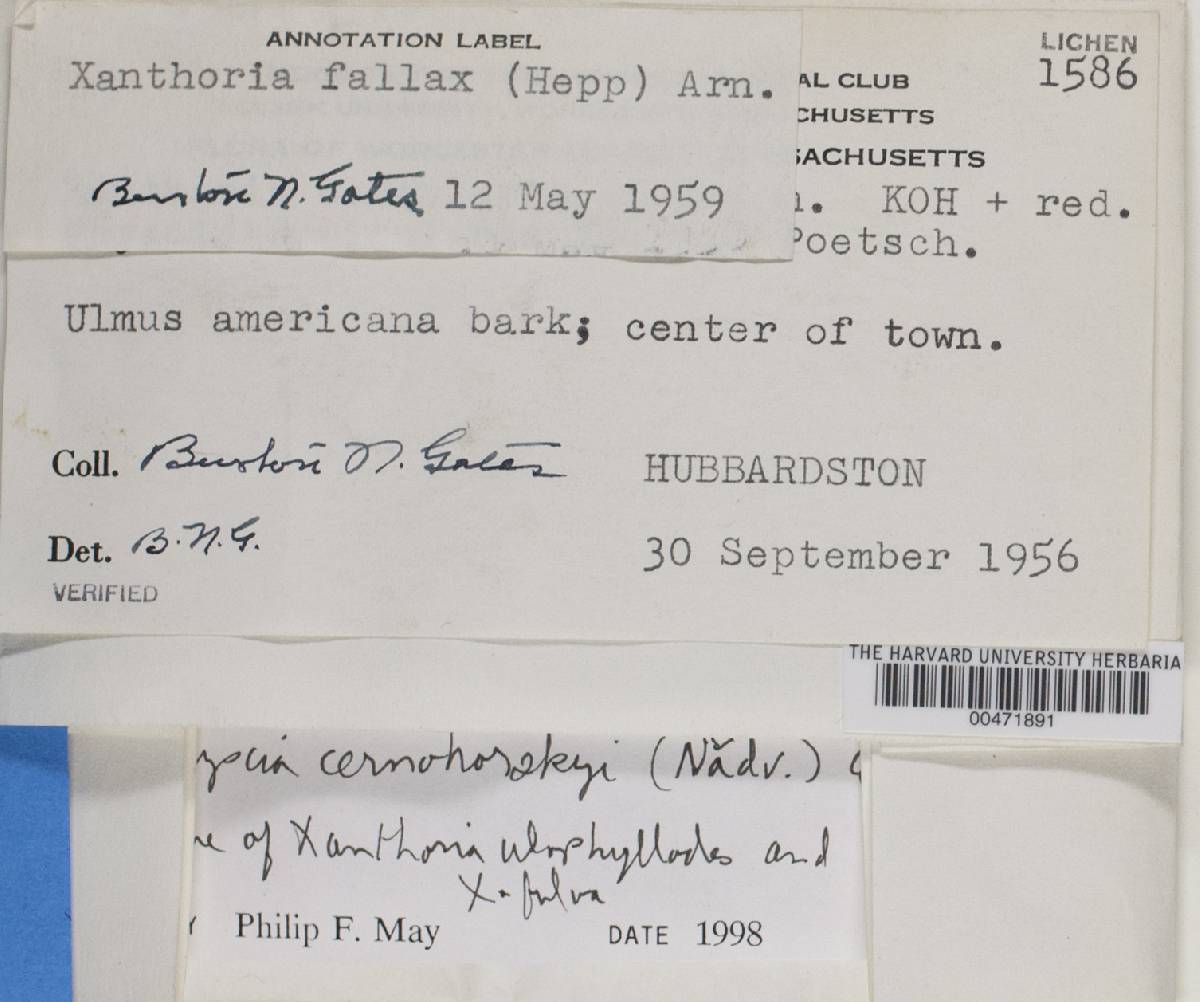 ANNOTATION LABEL
Xanthoria fallax (Hepp) Arn.
Burton N. Gates 12 May 1959
LICHEN
1586
AL CLUB
CHUSETTS
SACHUSETTS
. KOH + red.
Poetsch.
Ulmus americana bark; center of town.
Coll. Burton N. Gates HUBBARDSTON
Det. B.N.G. 30 September 1956
VERIFIED
THE HARVARD UNIVERSITY HERBARIA
00471891
cernohorskyi (Nădv.)
of Xanthoria ulophyllodes and
X. fulva
Philip F. May DATE 1998